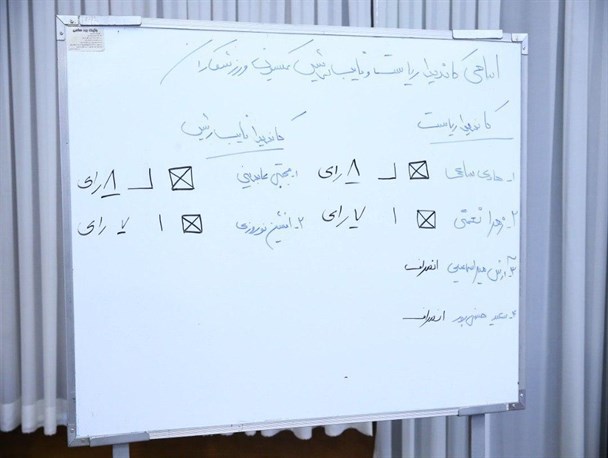 اسامی کاندیدا ریاست و نایب رئیس کمیسیون ورزشکاران
کاندیدا ریاست
۱- هادی ساعی ۸ رای
۲- زهرا نعمتی ۷ رای
۳- آرش میراسماعیلی انصراف
۴- سعید انصراف
کاندیدا نایب رئیس
۱- مجتبی عابدینی ۸ رای
۲- افشین نوروزی ۷ رای